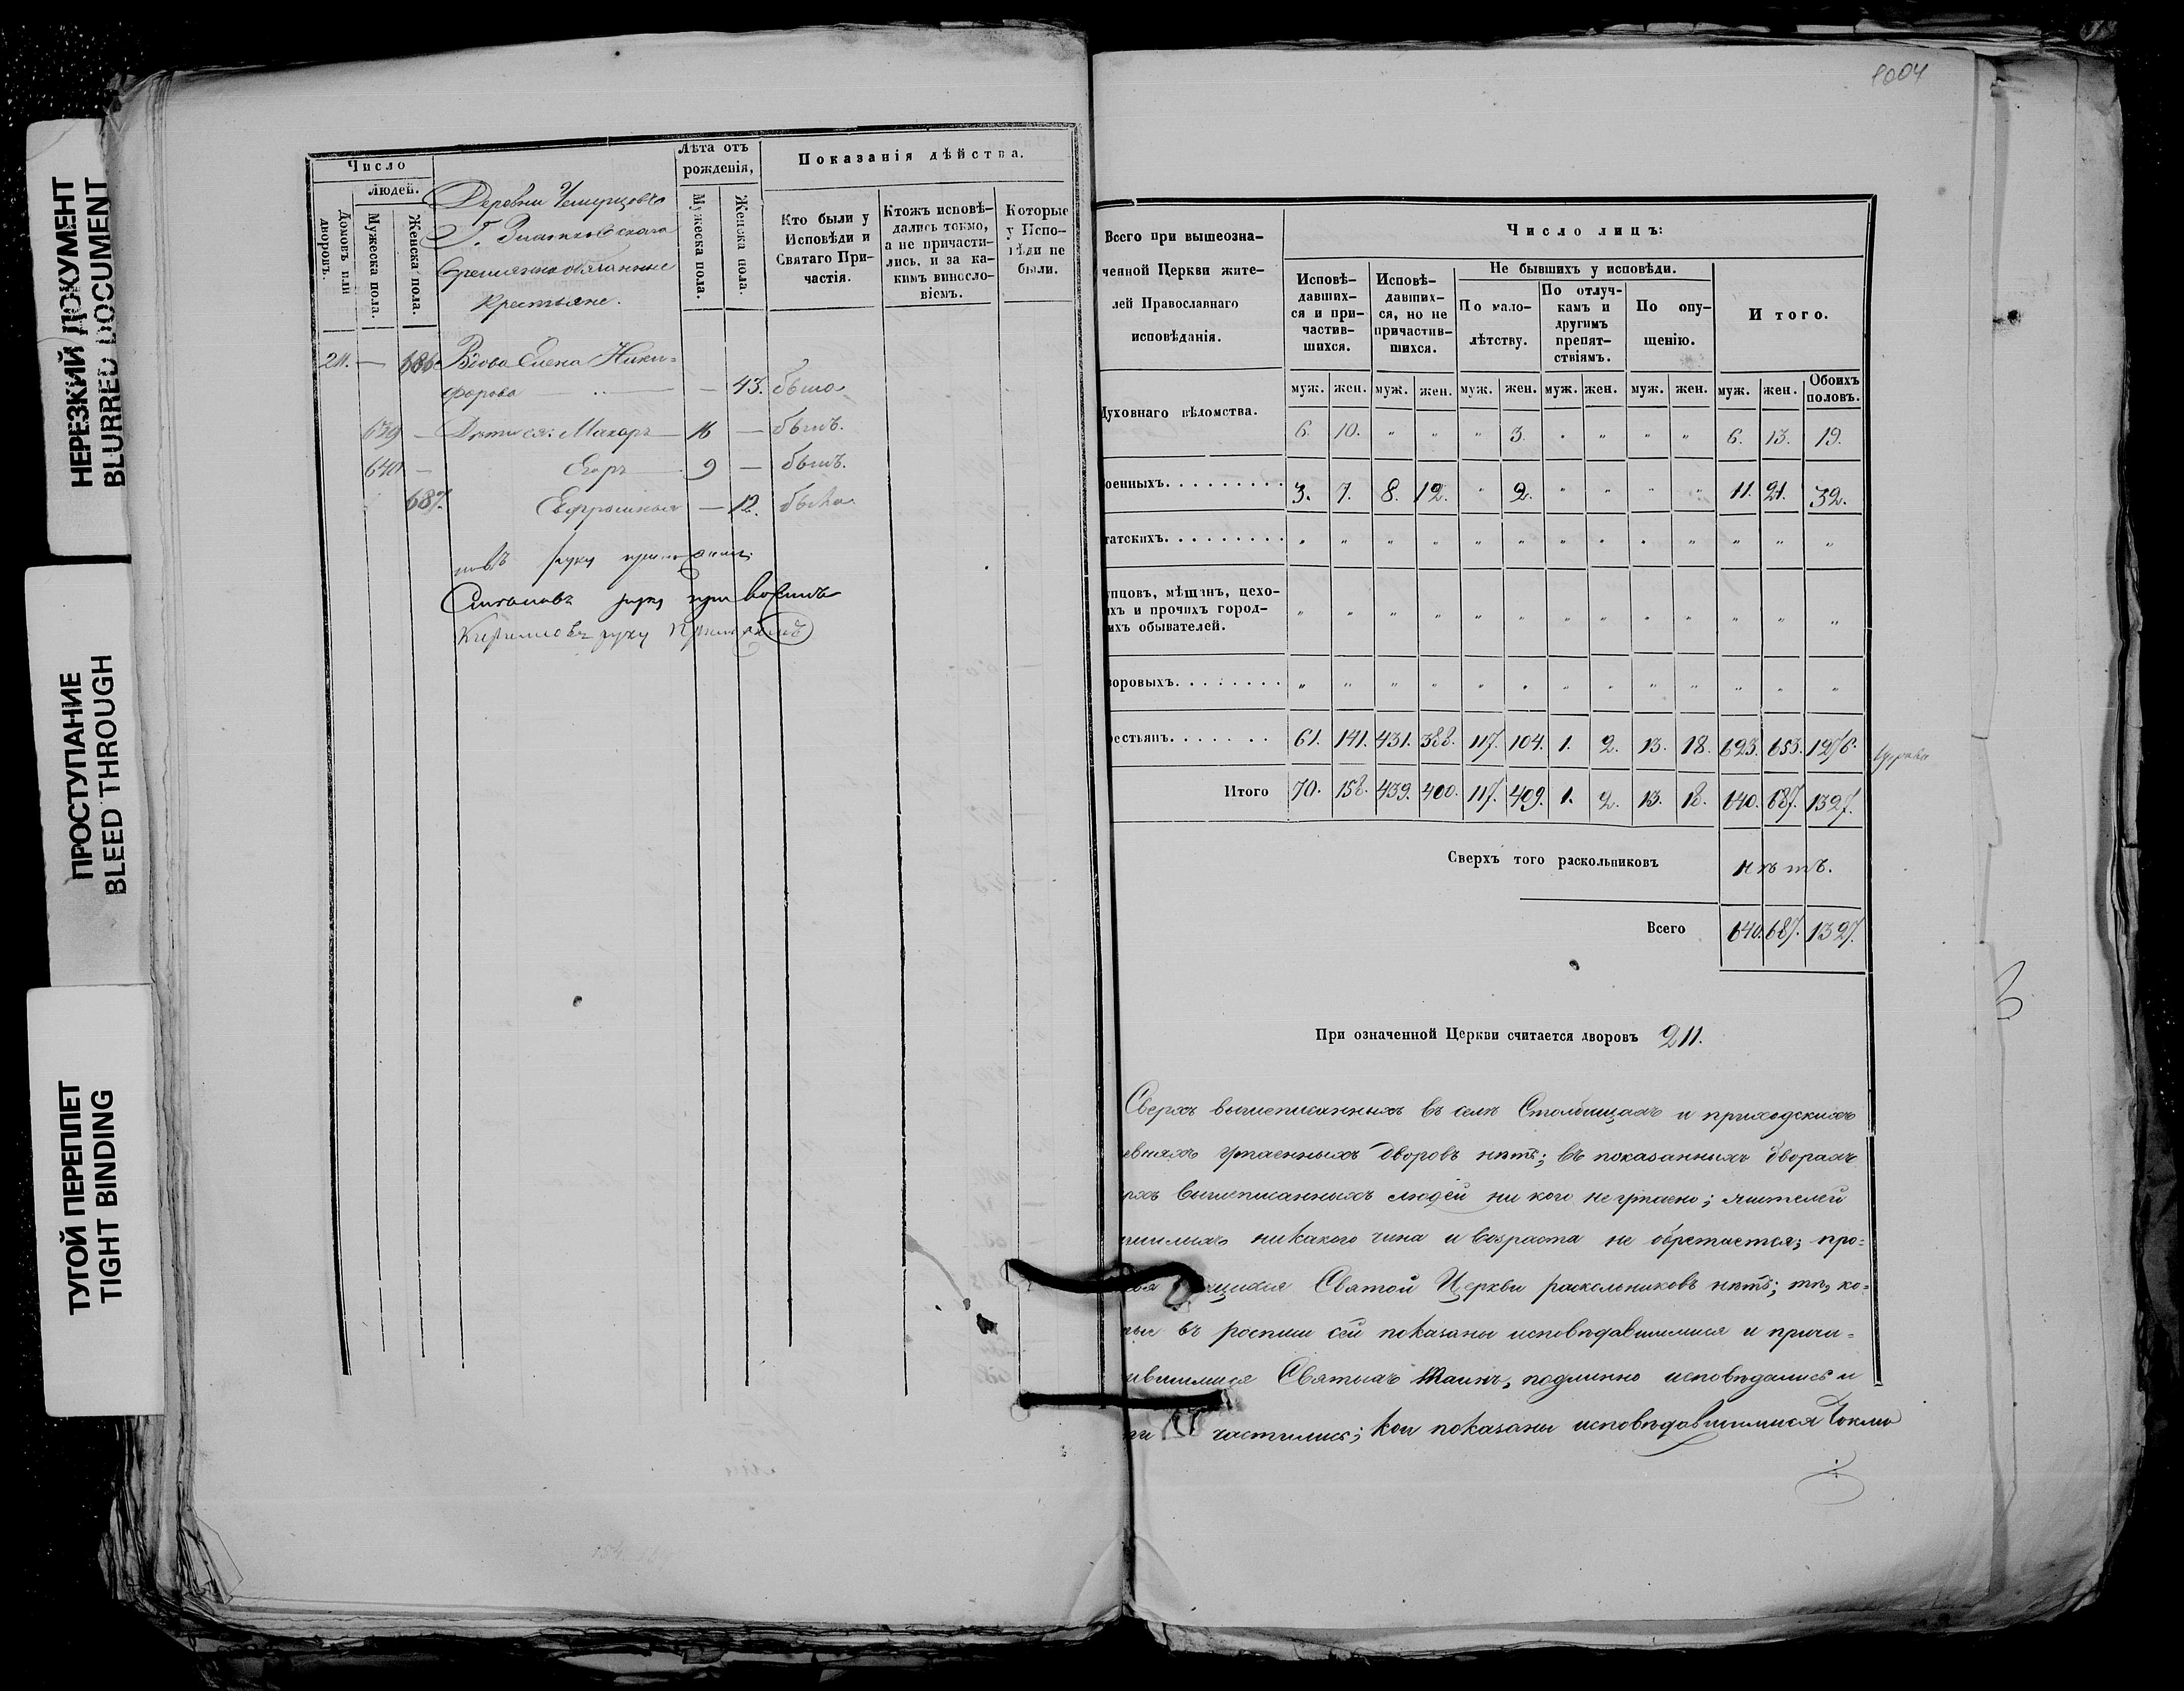 НЕРЕЗКИЙ ДОКУМЕНТ
BLURRED DOCUMENT
ПРОСТУПАНИЕ
BLEED THROUGH
ТУГОЙ ПЕРЕПЛЕТ
TIGHT BINDING
Число
людей.
Домовъ или дворовъ.
Мужеска пола.
Женска пола.
Деревни
Г.
Временнообязанные
Крестьяне.
Лѣта отъ
рожденія,
Мужеска пола.
Женска пола.
Показанія дѣйства.
Кто были у
Исповѣди и
Святаго При-
частія.
Ктожъ исповѣ-
дались токмо,
а не причасти-
лись, и за ка-
кимъ винсло-
віемъ.
Которые
у Испо-
вѣди не
были.
211. — 686 Вдова Елена Ники=
форова — — 43. была
639 — Дѣти ея: Макаръ — 16 — былъ.
640 — Егоръ — 9 — былъ.
687. Евфросинья — 12. была
руку приложилъ
руку приложилъ
Кириловъ руку приложилъ
1004
Всего при вышеозна-
ченной Церкви жите-
лей Православнаго
исповѣданія.
Число лицъ:
Исповѣ-
давших-
ся и при-
частив-
шихся.
Исповѣ-
давших-
ся, но не
причастив-
шихся.
Не бывшихъ у исповѣди.
По мало-
лѣтству.
По отлуч-
камъ и
другимъ
препят-
ствіямъ.
По опу-
щенію.
Итого.
муж. жен. муж. жен. муж. жен. муж. жен. муж. жен. муж. жен. Обоихъ
половъ.
Духовнаго вѣдомства. 6. 10. „ „ „ 3. „ „ „ „ 6. 13. 19.
оенныхъ. . . . . . . . . 3. 7. 8. 12. „ 2. „ „ „ „ 11. 21. 32.
татскихъ. . . . . . . . . „ „ „ „ „ „ „ „ „ „ „ „ „
упцовъ, мѣщанъ, цехо-
ихъ и прочихъ город-
ихъ обывателей. „ „ „ „ „ „ „ „ „ „ „ „ „
воровыхъ. . . . . . . . „ „ „ „ „ „ „ „ „ „ „ „ „
рестьянъ. . . . . . . 61. 141. 431. 388. 117. 104. 1. 2. 13. 18. 623. 653. 1276.
Итого 70. 158. 439. 400. 117. 409. 1. 2. 13. 18. 640. 687. 1327.
Сверхъ того раскольниковъ нѣтъ.
Всего 640. 687. 1327.
При означенной Церкви считается дворовъ 211.
Сверхъ вышеписанныхъ въ селѣ Столбищахъ и приходскихъ
евняхъ утаенныхъ дворовъ нѣтъ; въ показанныхъ дворахъ
рхъ вышеписанныхъ людей ни кого не утаено; жителей
никакого чина и возраста не обрѣтается; про=
Святой Церкви раскольниковъ нѣтъ; тѣ, ко=
рые въ росписи сей показаны исповѣдавшимися и прича=
ившимися Святыхъ Таинъ, подлинно исповѣдались и
ри частились; кои показаны исповѣдавшимися токмо